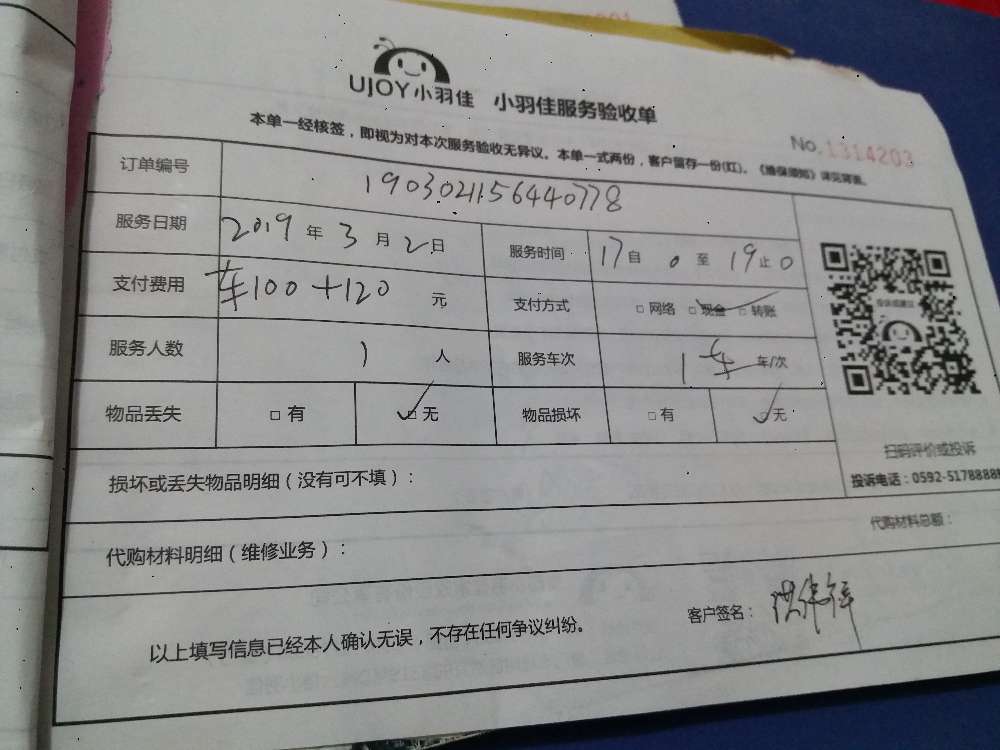 UJOY小羽佳 小羽佳服务验收单
本单一经核签，即视为对本次服务验收无异议。本单一式两份，客户留存一份(红)。《维保须知》详见背面。
No.1314203
订单编号 1903021156440778
服务日期 2019 年 3 月 2 日 服务时间 17 自 0 至 19 止 0
支付费用 车100+120 元 支付方式 □ 网络 □ 现金 □ 转账
服务人数 1 人 服务车次 1车 车/次
物品丢失 □ 有 □ 无 物品损坏 □ 有 □ 无
扫码评价或投诉
投诉电话：0592-5178888
损坏或丢失物品明细（没有可不填）：
代购材料明细（维修业务）： 代购材料总额：
以上填写信息已经本人确认无误，不存在任何争议纠纷。 客户签名：